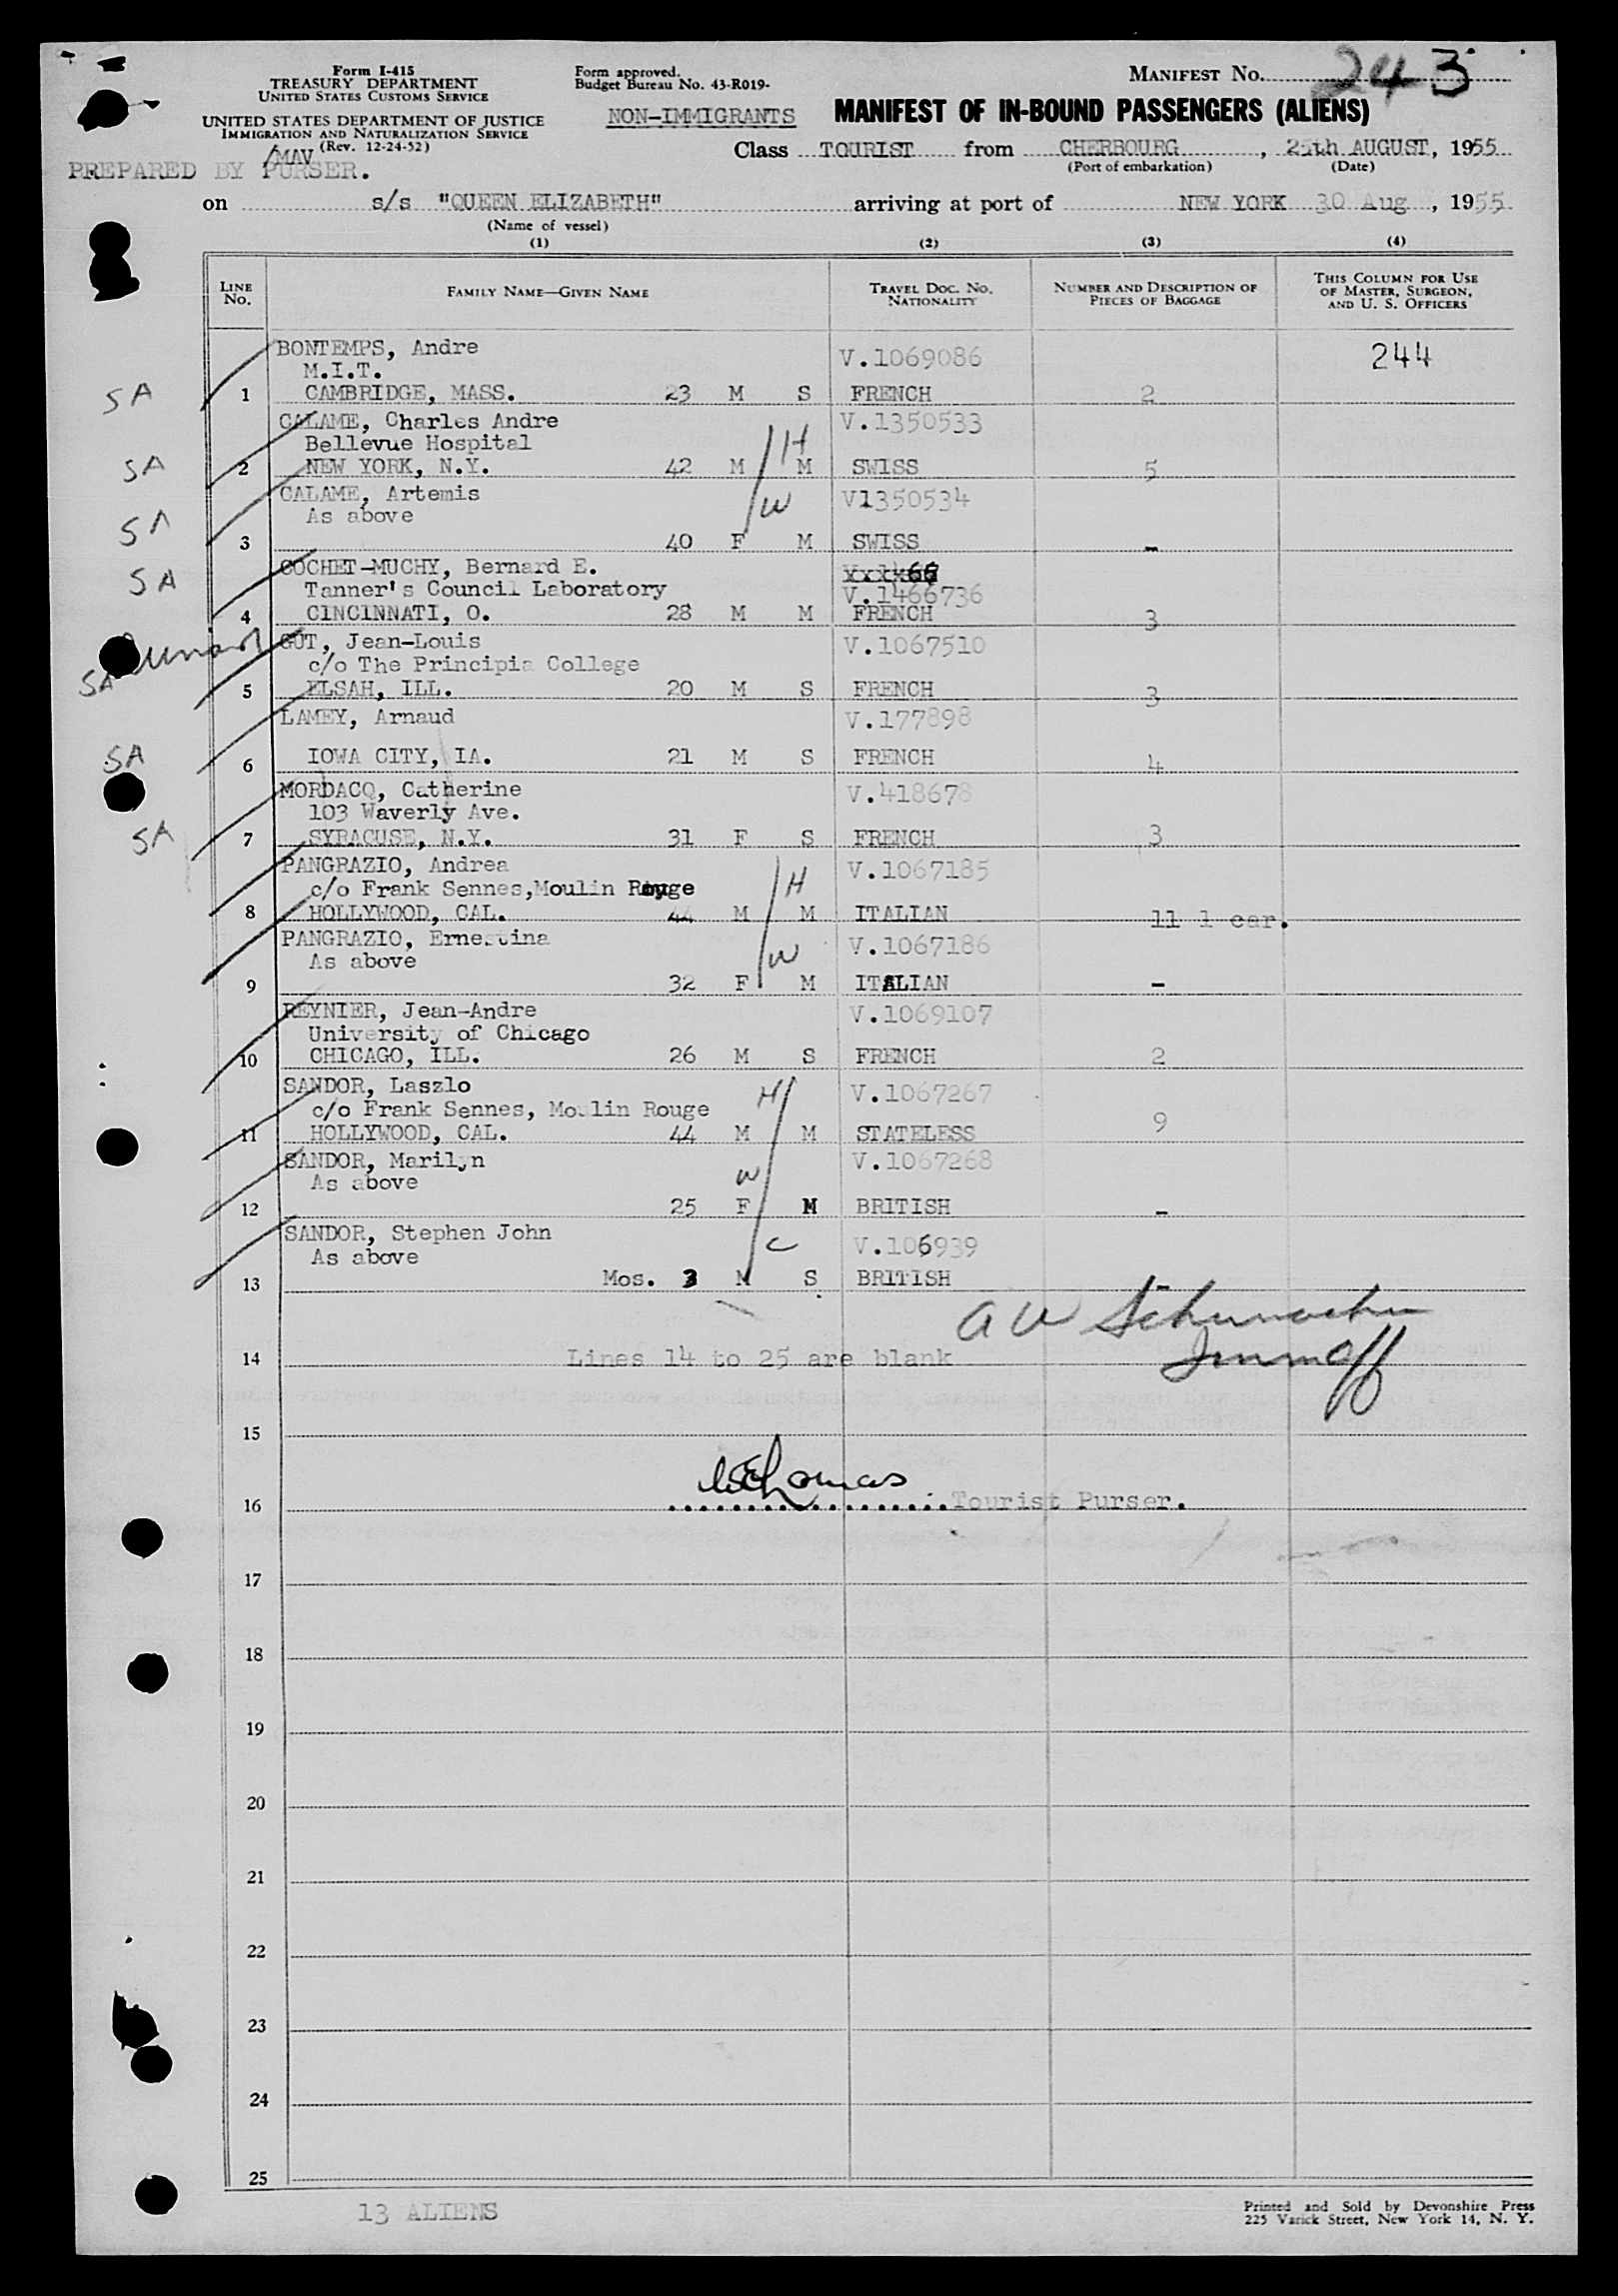 Form I-415
TREASURY DEPARTMENT
UNITED STATES CUSTOMS SERVICE
UNITED STATES DEPARTMENT OF JUSTICE
IMMIGRATION AND NATURALIZATION SERVICE
(Rev. 12-24-52)
Form approved.
Budget Bureau No. 43-R019-
MANIFEST No. 243
NON-IMMIGRANTS MANIFEST OF IN-BOUND PASSENGERS (ALIENS)
/MAV
PREPARED BY PURSER.
Class TOURIST from CHERBOURG, 25th AUGUST, 1955
(Port of embarkation) (Date)
on s/s "QUEEN ELIZABETH" arriving at port of NEW YORK 30 Aug, 1955
(Name of vessel)
(1) (2) (3) (4)
LINE No. FAMILY NAME—GIVEN NAME TRAVEL DOC. NO. NATIONALITY NUMBER AND DESCRIPTION OF PIECES OF BAGGAGE THIS COLUMN FOR USE OF MASTER, SURGEON, AND U. S. OFFICERS
BONTEMPS, Andre V.1069086 244
M.I.T.
SA 1 CAMBRIDGE, MASS. 23 M S FRENCH 2
CALAME, Charles Andre V.1350533
Bellevue Hospital H
SA 2 NEW YORK, N.Y. 42 M M SWISS 5
CALAME, Artemis V1350534
As above W
SA 3 40 F M SWISS -
COCHET-MUCHY, Bernard E.
Tanner's Council Laboratory V.1466736
SA 4 CINCINNATI, O. 28 M M FRENCH 3
GUT, Jean-Louis V.1067510
c/o The Principia College
SA 5 ELSAH, ILL. 20 M S FRENCH 3
LAMEY, Arnaud V.177898
SA 6 IOWA CITY, IA. 21 M S FRENCH 4
MORDACQ, Catherine V.418678
103 Waverly Ave.
SA 7 SYRACUSE, N.Y. 31 F S FRENCH 3
PANGRAZIO, Andrea V.1067185
c/o Frank Sennes,Moulin Rouge H
8 HOLLYWOOD, CAL. 44 M M ITALIAN 11 1 car.
PANGRAZIO, Ernestina V.1067186
As above W
9 32 F M ITALIAN -
REYNIER, Jean-Andre V.1069107
University of Chicago
10 CHICAGO, ILL. 26 M S FRENCH 2
SANDOR, Laszlo H V.1067267
c/o Frank Sennes, Moulin Rouge
11 HOLLYWOOD, CAL. 44 M M STATELESS 9
SANDOR, Marilyn V.1067268
As above W
12 25 F M BRITISH -
SANDOR, Stephen John V.106939
As above C
13 Mos. 3 M S BRITISH -
A W Schumacher
Imm Off
14 Lines 14 to 25 are blank
15
Thomas
16 Tourist Purser.
17
18
19
20
21
22
23
24
25
13 ALIENS
Printed and Sold by Devonshire Press
225 Varick Street, New York 14, N. Y.